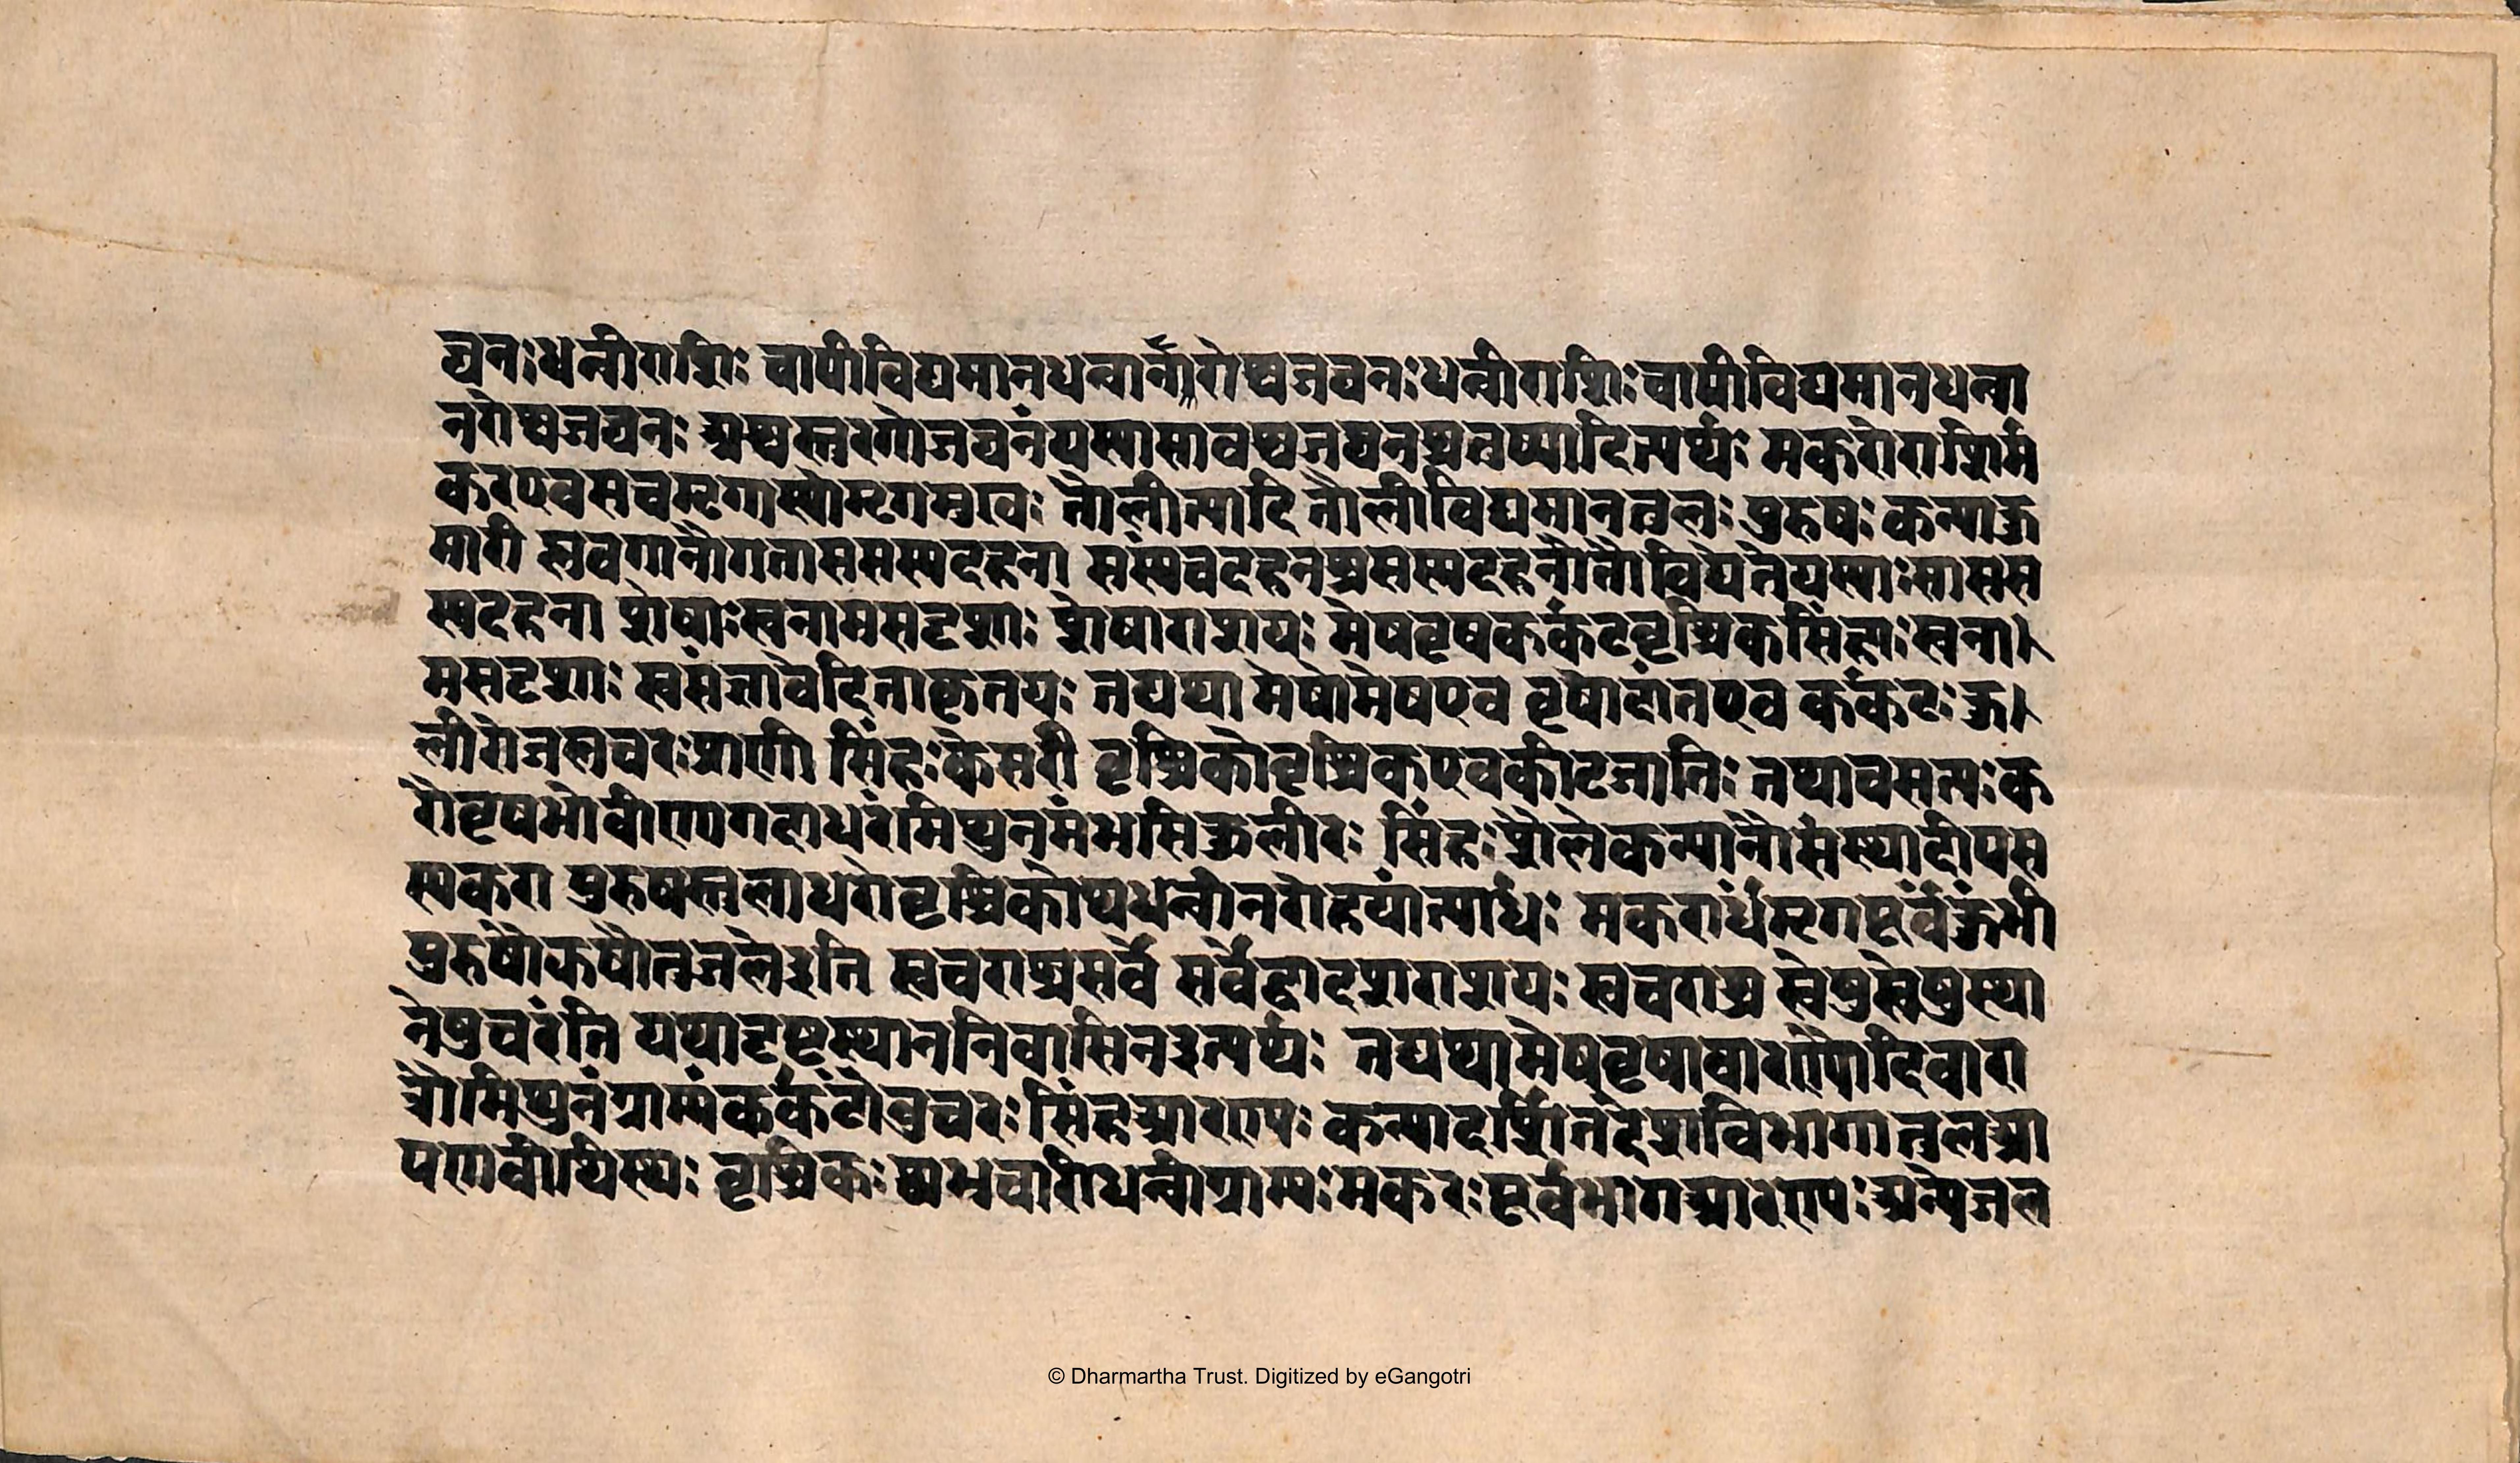 घनः धन्वीराशिः चापीविद्यमानधन्वार्नरोश्वजघनः धन्वीराशिः चापीविद्यमानधन्वा
नरोश्वजघनः अश्वस्तुरगोजघनंयस्यासावश्वजघनश्चतुष्पादित्यर्थः मकरोराशिर्म
करएवसचमृगास्योमृगमुखः तौलीत्यादि तौलीविद्यमानतुलः पुरुषः कन्याकु
मारी प्लवगानौगतासससस्यदहना संस्यंचदहनश्चसस्यदहनौतौविद्येतेयस्याःसासस
स्यदहना शेषाःस्वनामसदृशाः शेषाराशयः मेषवृषकर्कटवृश्चिकसिंहाःस्वना
मसदृशाः स्वसंज्ञावेदिताकृतयः तद्यथा मेषोमेषएव वृषोदांतएव कर्कटः कु
लीरोजलचरःप्राणी सिंहःकेसरी वृश्चिकोवृश्चिकएवकीटजातिः तथाचसत्यःक
रोवृषभोवीणागदाधरंमिथुनमंभसिकुलीरः सिंहःशैलेकन्यानौसंस्थादीपस
स्यकरा पुरुषस्तुलाधरोवृश्चिकोथधन्वीनरोहयांत्यार्धः मकरार्धंमृगपूर्वंकुंभी
पुरुषोझषौतुजलेइति स्वचराश्चसर्वे सर्वेद्वादशराशयः स्वचराश्च स्वेषुस्वेषुस्था
नेषुचरंति यथादृष्टस्थाननिवासिनइत्यर्थः तद्यथामेषवृषावारण्यौदिवारा
त्रौमिथुनंग्राम्यंकर्कटोंबुचरः सिंहआरण्यः कन्यादर्शितदेशविभागातुलआ
पणवीथिस्थः वृश्चिकः श्वभ्रचारीधन्वीग्राम्यःमकरःपूर्वभागआरण्यःअन्यजल
© Dharmartha Trust. Digitized by eGangotri